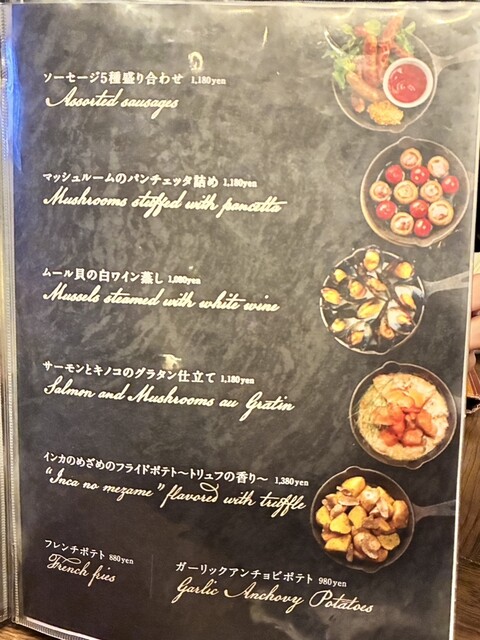 ソーセージ5種盛り合わせ 1,180yen
Assorted sausages
マッシュルームのパンチェッタ詰め 1,180yen
Mushrooms stuffed with pancetta
ムール貝の白ワイン蒸し 1,080yen
Mussels steamed with white wine
サーモンとキノコのグラタン仕立て 1,180yen
Salmon and Mushrooms au Gratin
インカのめざめのフライドポテト〜トリュフの香り〜 1,380yen
"Inca no mezame" flavored with truffle
フレンチポテト 880yen
French fries
ガーリックアンチョビポテト 980yen
Garlic Anchovy Potatoes